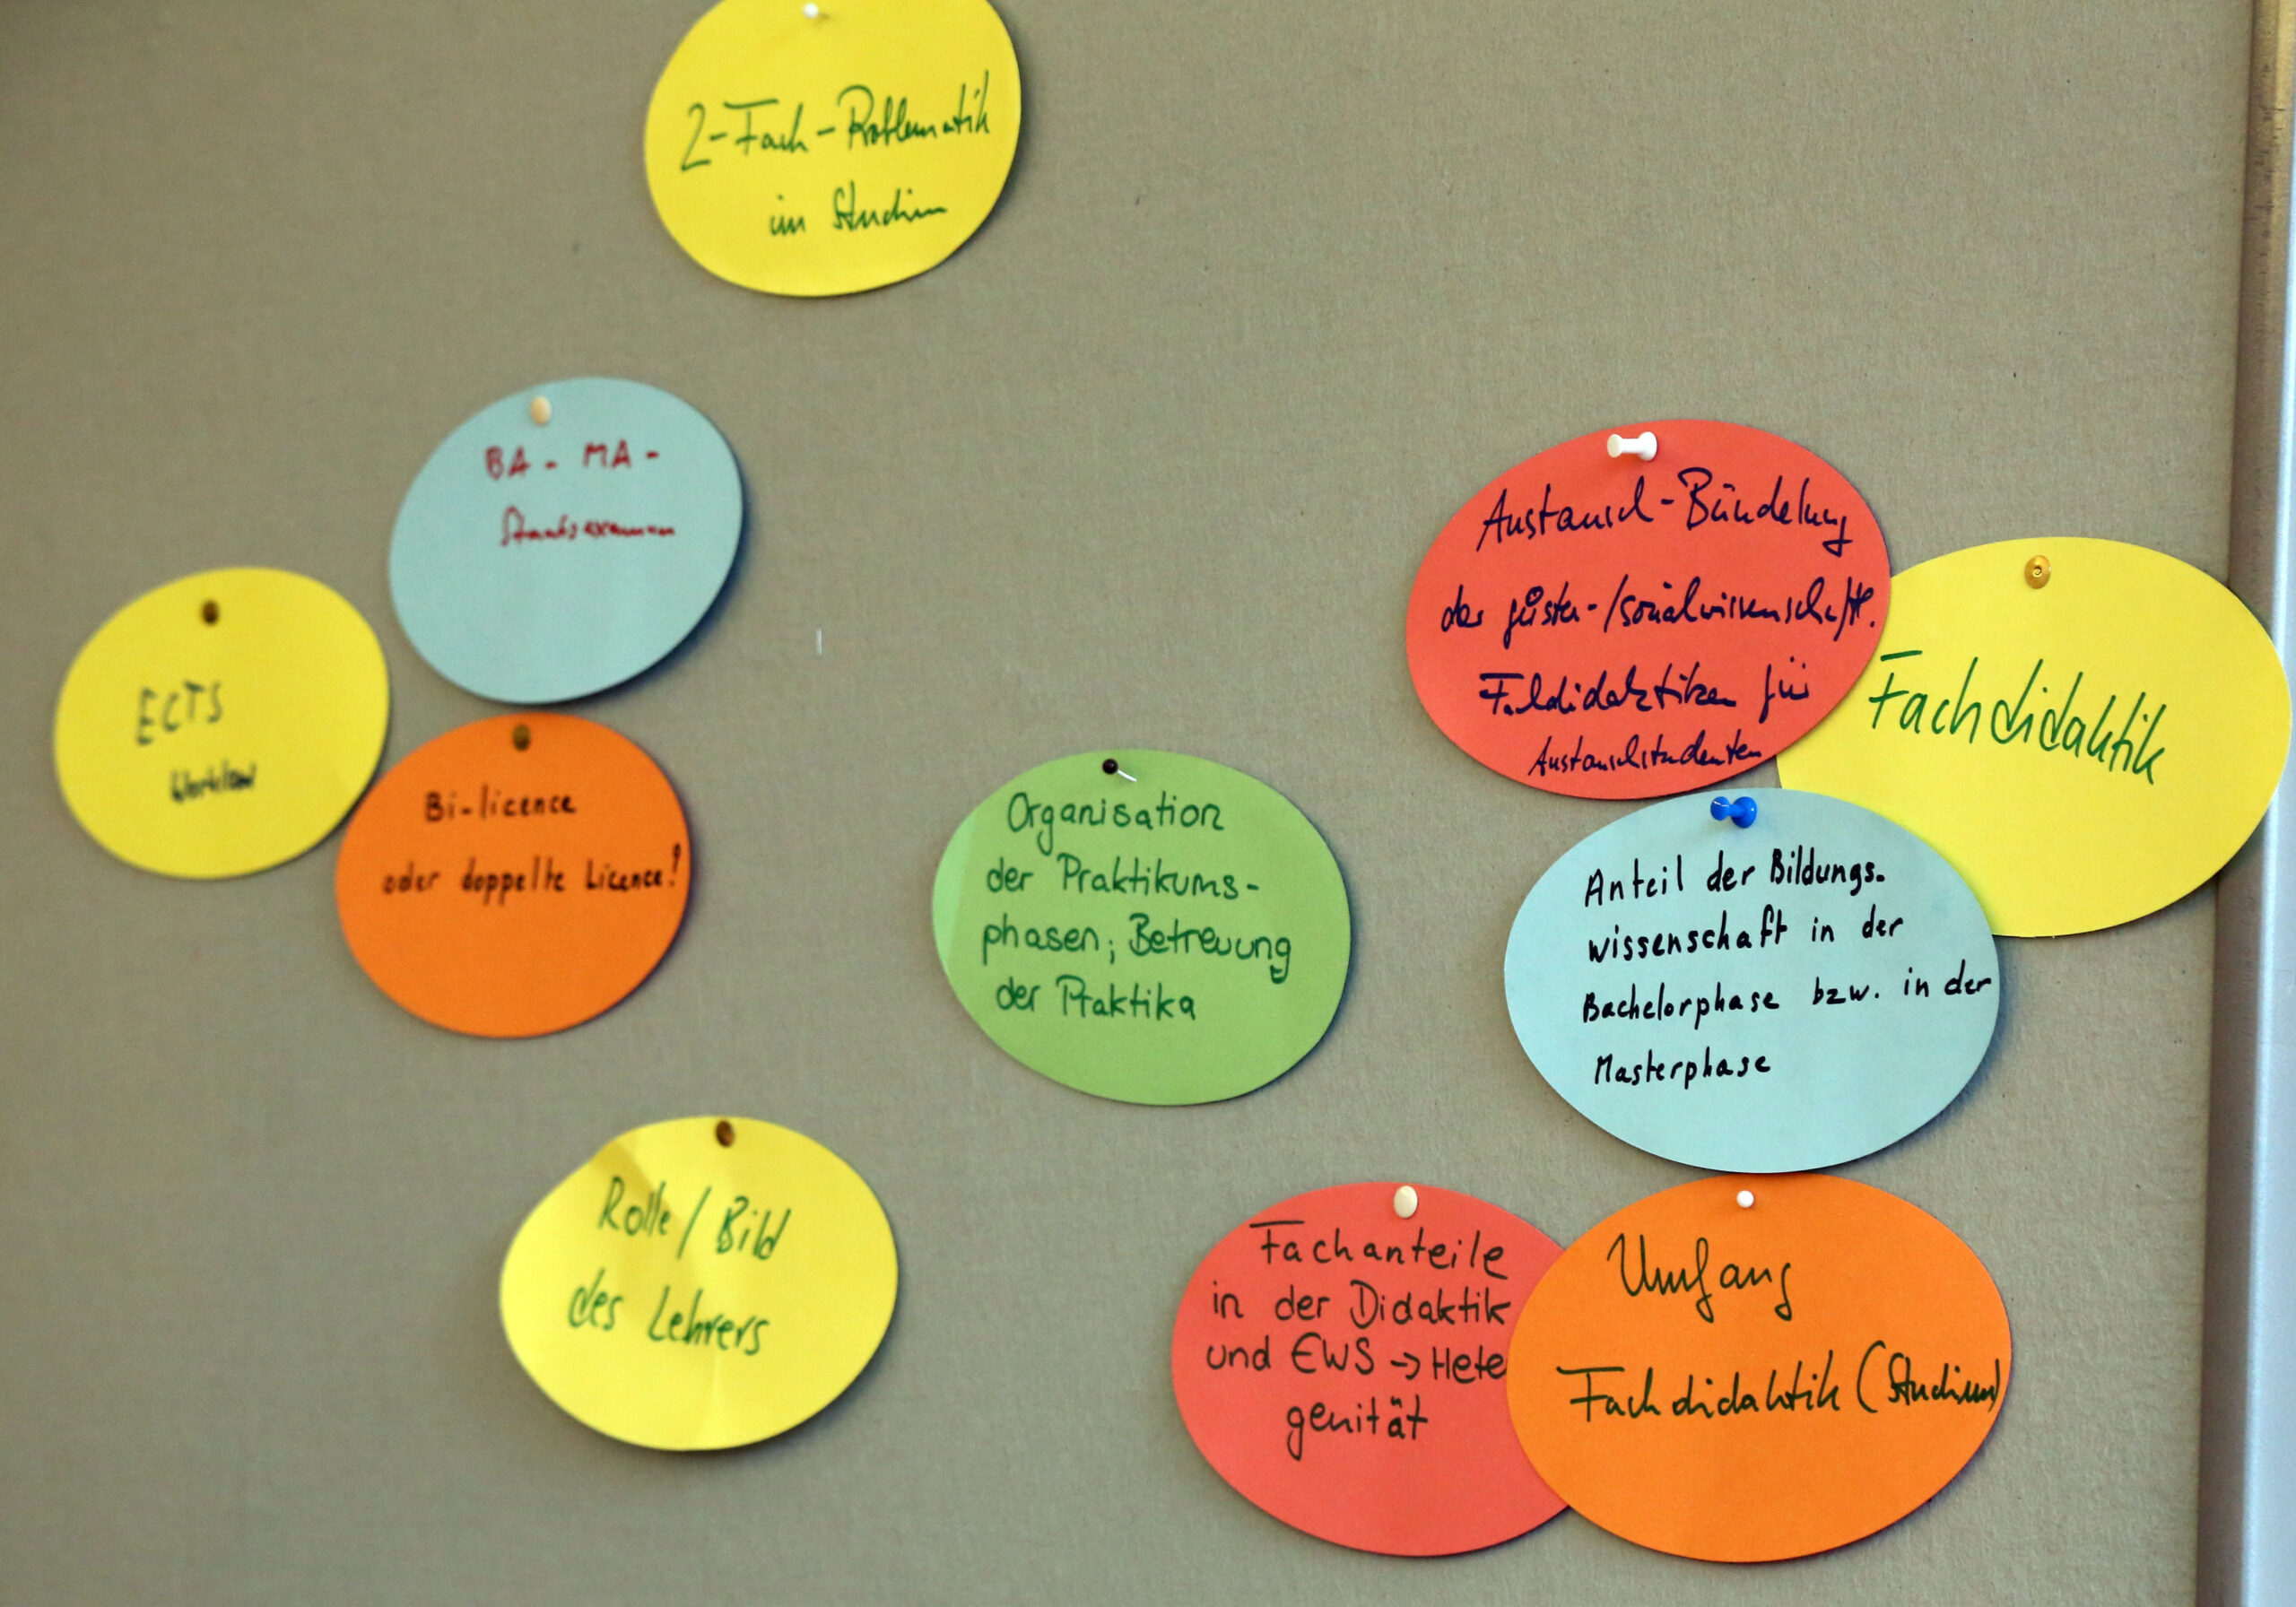 2-Fach-Problematik
im Studium
BA - MA -
Staatsexamen
ECTS
Workload
Bi-licence
oder doppelte Licence!
Organisation
der Praktikums-
phasen; Betreuung
der Praktika
Rolle / Bild
des Lehrers
Austausch-Bündelung
der geister-/sozialwissenschaftl.
Fachdidaktiken für
Austauschstudenten
Fachdidaktik
Anteil der Bildungs-
wissenschaft in der
Bachelorphase bzw. in der
Masterphase
Fachanteile
in der Didaktik
und EWS → Hete
genität
Umfang
Fachdidaktik (Studium)